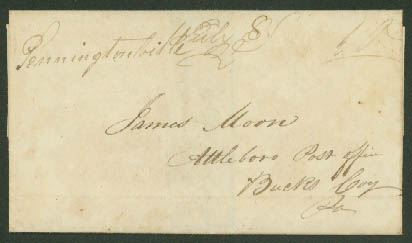 Penningtonville July 8
10
James Moon
Attleboro Post offic
Bucks Coy
Pa